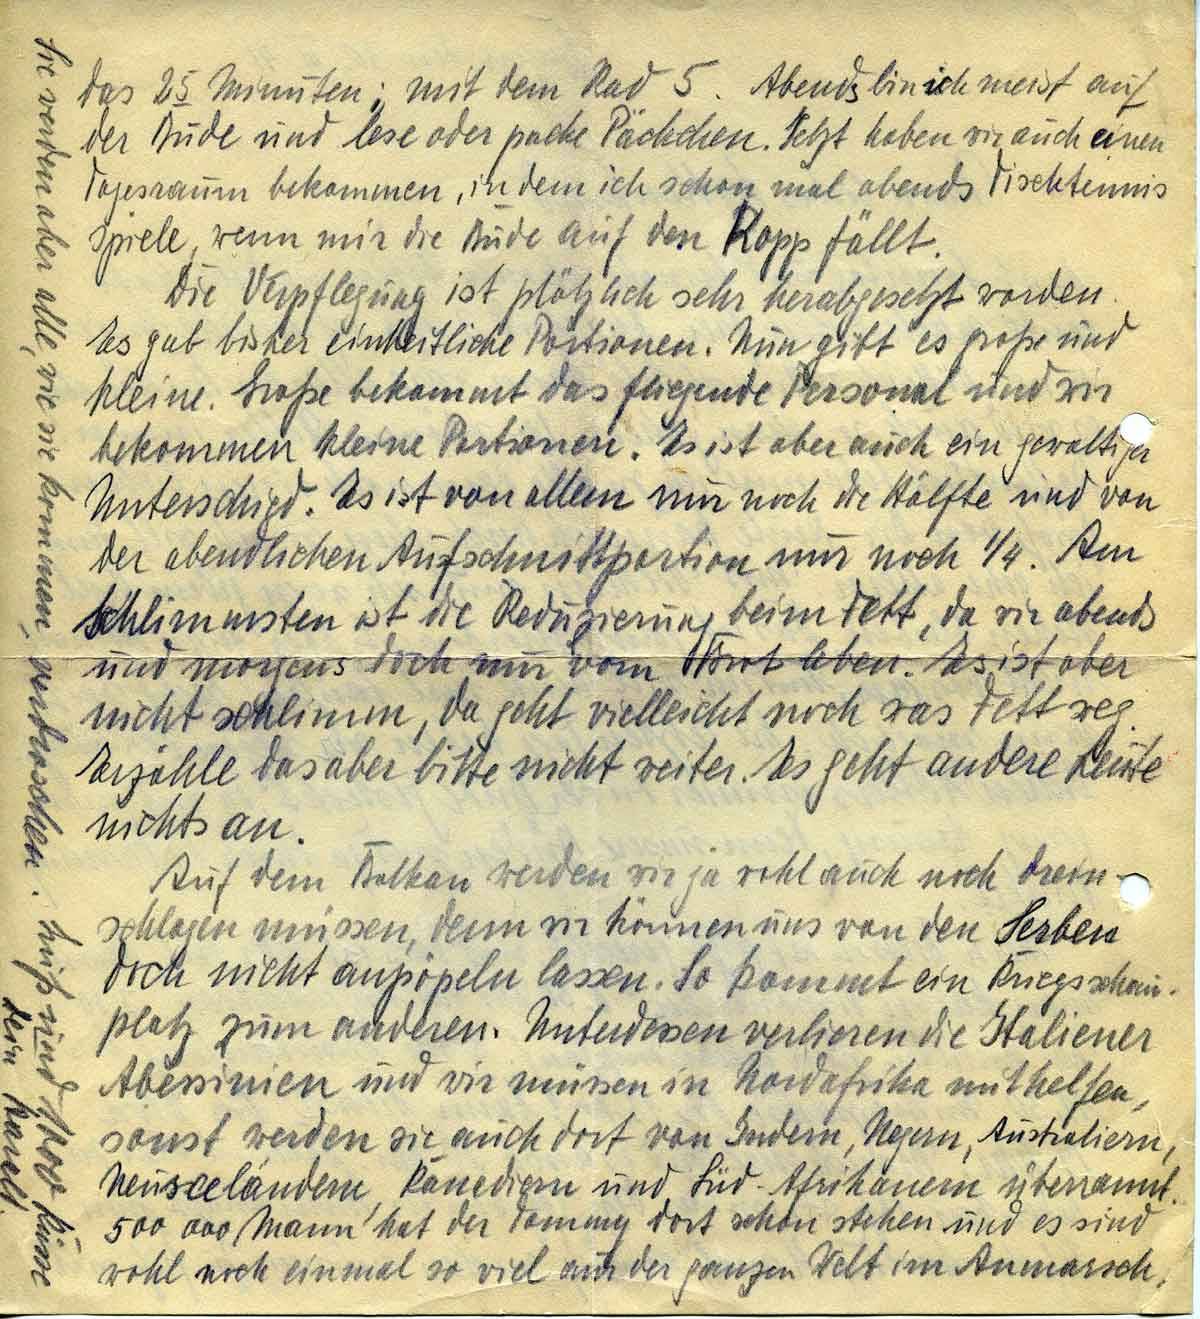 das 25 Minuten; mit dem Rad 5. Abends bin ich meist auf
der Bude und lese oder packe Päckchen. Jetzt haben wir auch einen
Tagesraum bekommen, in dem ich schon mal abends Tischtennis
spiele, wenn mir die Bude auf den Kopp fällt.
Die Verpflegung ist plötzlich sehr herabgesetzt worden.
Es gab bisher einheitliche Portionen. Nun gibt es große und
kleine. Große bekommt das fliegende Personal und wir
bekommen kleine Portionen. Es ist aber auch ein gewaltiger
Unterschied. Es ist von allem nur noch die Hälfte und von
der abendlichen Aufschnittportion nur noch 1/4. Am
schlimmsten ist die Reduzierung beim Fett, da wir abends
und morgens doch nur vom Brot leben. Es ist aber
nicht schlimm, da geht vielleicht noch was Fett weg.
Erzähle das aber bitte nicht weiter. Es geht andere Leute
nichts an.
Auf dem Balkan werden wir ja wohl auch noch drein-
schlagen müssen, denn wir können uns von den Serben
doch nicht anpöpeln lassen. So kommt ein Kriegsschau-
platz zum anderen. Unterdessen verlieren die Italiener
Abessinien und wir müssen in Nordafrika mithelfen,
sonst werden sie auch dort von Indern, Negern, Australiern,
Neuseeländern, Kanediern und Süd-Afrikanern überrannt.
500 000 Mann hat der Tommy dort schon stehen und es sind
wohl noch einmal so viel aus der ganzen Welt im Anmarsch.
Sie werden aber alle, wie sie kommen, verdroschen. Gruß und Küsse
dein Harald.